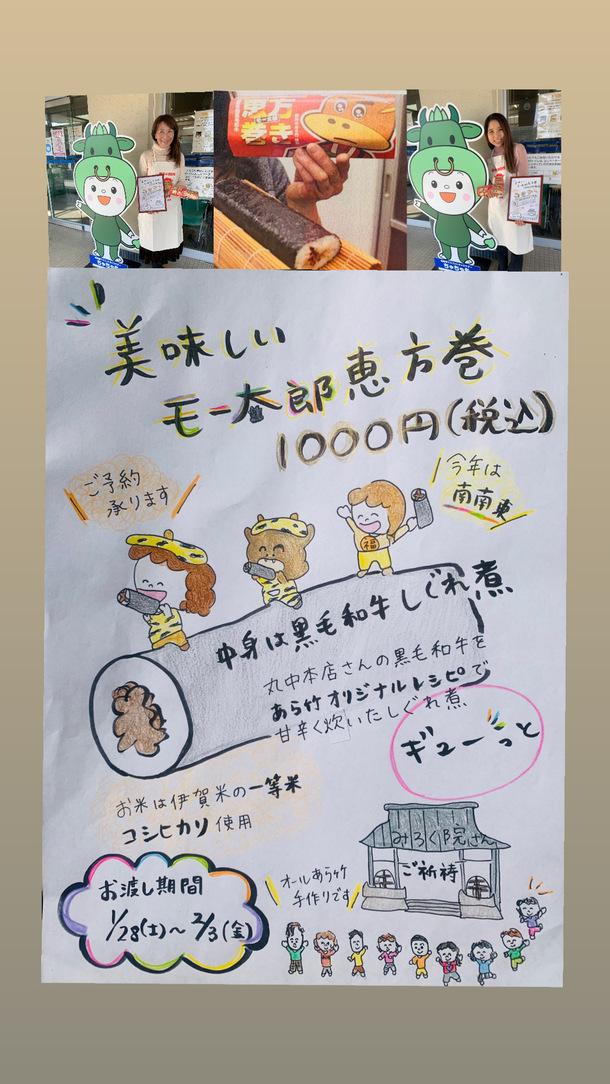 美味しい
モー太郎恵方巻
1000円(税込)
ご予約
承ります
今年は
南南東
福
中身は黒毛和牛しぐれ煮
丸中本店さんの黒毛和牛を
あら竹オリジナルレシピで
甘辛く炊いたしぐれ煮
ギューっと
お米は伊賀米の一等米
コシヒカリ使用
みろく院さん
ご祈祷
お渡し期間
1/28(土)～2/3(金)
オールあら竹
手作りです